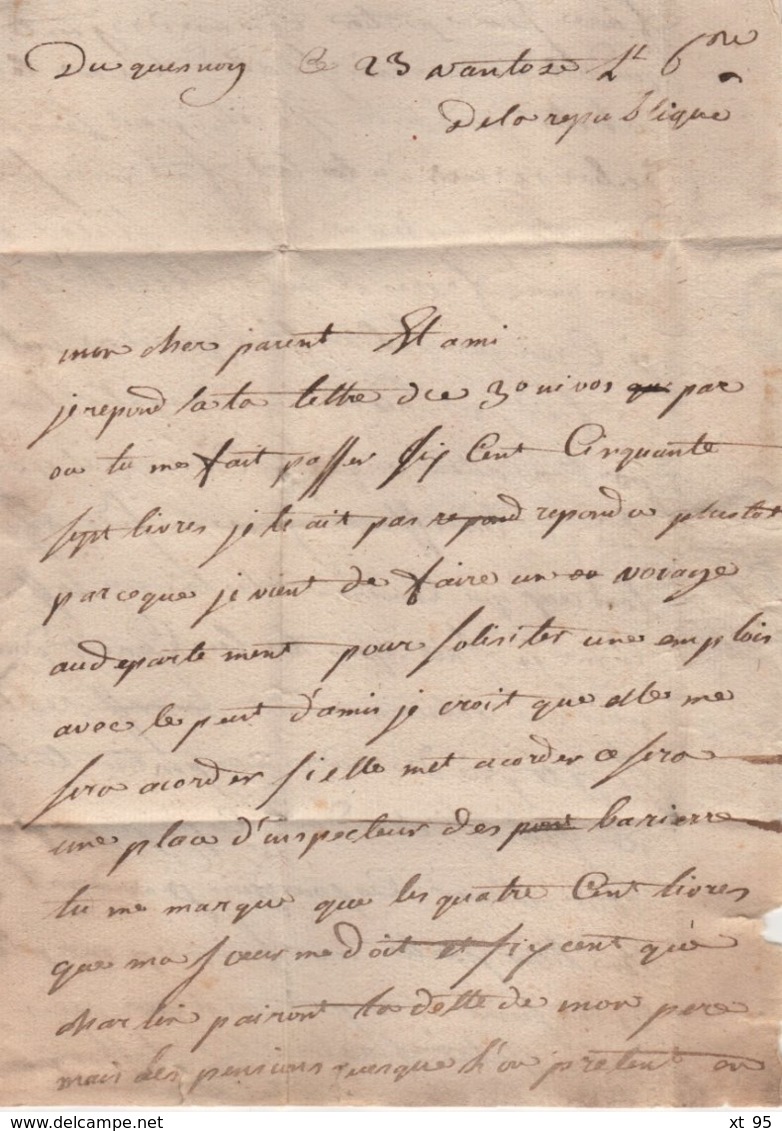 Du quesnoy Ce 23 vantose L't 6me
De la republique
mon cher parent Et ami
je repond sa ta lettre dee 30 nivos par
ou tu me fait passer six Cent Cinquante
sept livres je te ait pas repond repondu plustot
parceque je vient de faire un voiage
au departement pour solisiter une emplois
avec le peut d'amis je croit que elle me
sera acorder si elle met acorder ce sera
une place d'inspecteur des barierre
tu me marque que les quatre Cent livres
que ma soeur me doit et six cent qu'e
charlin pairont la dette de mon pere
mais les pensions l'on pretent on
xt 95